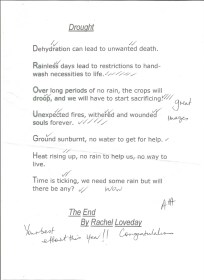 Drought
Dehydration can lead to unwanted death.
Rainless days lead to restrictions to hand-
wash necessities to life.
Over long periods of no rain, the crops will
droop, and we will have to start sacrificing!
great
images
Unexpected fires, withered and wounded
souls forever.
Ground sunburnt, no water to get for help.
Heat rising up, no rain to help us, no way to
live.
Time is ticking, we need some rain but will
there be any?
wow
A++
The End
By Rachel Loveday
Your best
effort this year!! Congratulations